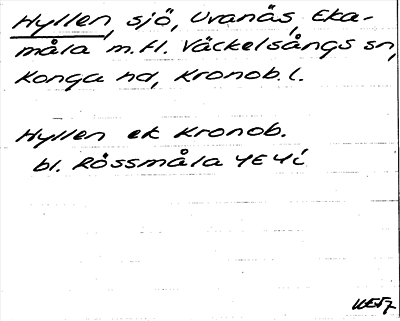 Hyllen, sjö, Uranäs, Eka-
måla m.fl. Väckelsångs sn,
Konga hd, Kronob. l.
Hyllen ek Kronob.
bl. Rössmåla 4E4i